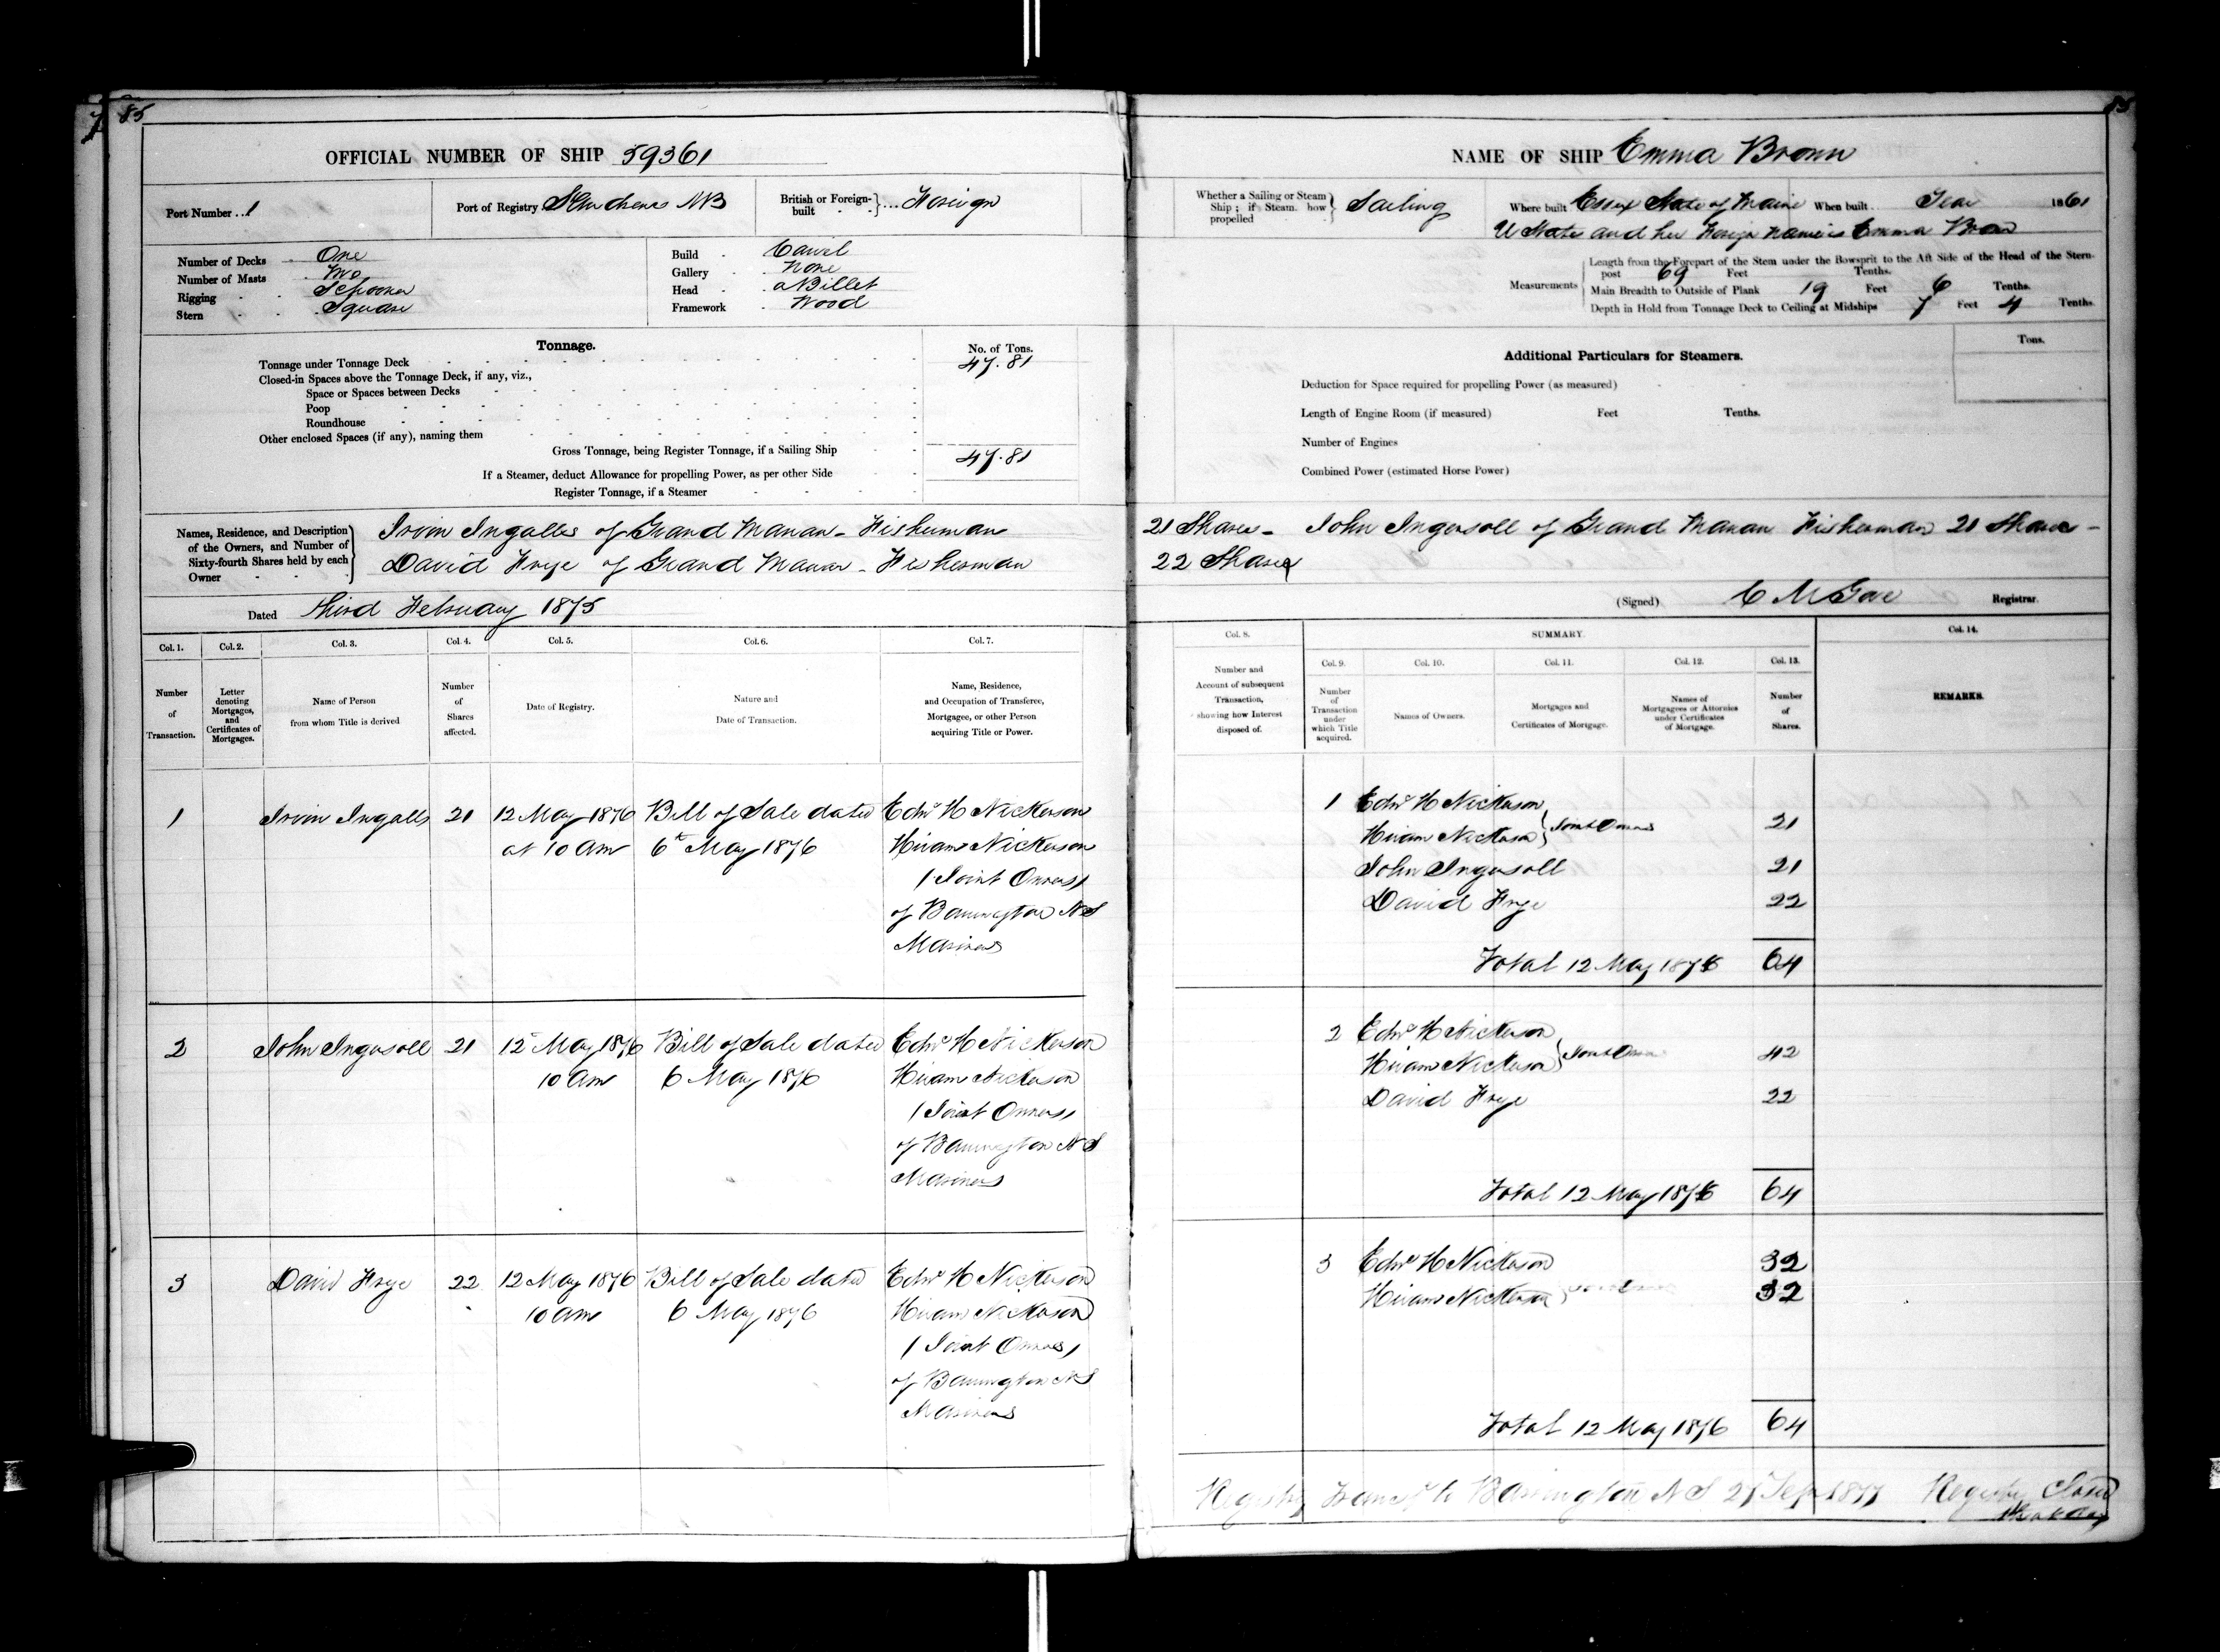 85
OFFICIAL NUMBER OF SHIP 59361
Port Number 1
Port of Registry St Andrews NB
British or Foreign-built } Foreign
Number of Decks One
Number of Masts Two
Rigging Schooner
Stern Square
Build Carvel
Gallery None
Head a Billet
Framework Wood
Tonnage.
No. of Tons.
Tonnage under Tonnage Deck 47.81
Closed-in Spaces above the Tonnage Deck, if any, viz.,
Space or Spaces between Decks
Poop
Roundhouse
Other enclosed Spaces (if any), naming them
Gross Tonnage, being Register Tonnage, if a Sailing Ship 47.81
If a Steamer, deduct Allowance for propelling Power, as per other Side
Register Tonnage, if a Steamer
Names, Residence, and Description
of the Owners, and Number of
Sixty-fourth Shares held by each
Owner
Irvin Ingalls of Grand Manan - Fisherman
David Frye of Grand Manan - Fisherman
Dated third February 1875
Col. 1.
Number
of
Transaction.
Col. 2.
Letter
denoting
Mortgages,
and
Certificates of
Mortgages.
Col. 3.
Name of Person
from whom Title is derived
Col. 4.
Number
of
Shares
affected.
Col. 5.
Date of Registry.
Col. 6.
Nature and
Date of Transaction.
Col. 7.
Name, Residence,
and Occupation of Transferee,
Mortgagee, or other Person
acquiring Title or Power.
1 Irvin Ingalls 21 12 May 1876 Bill of Sale dated Edwd H Nickerson
at 10 am 6th May 1876 Hiram Nickerson
(Joint Owners)
of Barrington NS
Mariners
2 John Ingersoll 21 12 May 1876 Bill of Sale dated Edwd H Nickerson
10 am 6 May 1876 Hiram Nickerson
(Joint Owners)
of Barrington NS
Mariners
3 David Frye 22 12 May 1876 Bill of Sale dated Edwd H Nickerson
10 am 6 May 1876 Hiram Nickerson
(Joint Owners)
of Barrington NS
Mariners
85
NAME OF SHIP Emma Brown
Whether a Sailing or Steam
Ship; if Steam. how
propelled
Sailing
Where built Essex State of Maine When built Year 1861
U States and her Foreign Name is Emma Brown
Measurements
Length from the Forepart of the Stem under the Bowsprit to the Aft Side of the Head of the Stern-
post 69 Feet Tenths.
Main Breadth to Outside of Plank 19 Feet 6 Tenths.
Depth in Hold from Tonnage Deck to Ceiling at Midships 7 Feet 4 Tenths.
Tons.
Additional Particulars for Steamers.
Deduction for Space required for propelling Power (as measured)
Length of Engine Room (if measured) Feet Tenths.
Number of Engines
Combined Power (estimated Horse Power)
21 Shares - John Ingersoll of Grand Manan Fisherman 21 Shares -
22 Shares
(Signed) C M Gove Registrar.
Col. 8.
Number and
Account of subsequent
Transaction,
showing how Interest
disposed of.
SUMMARY.
Col. 9.
Number
of
Transaction
under
which Title
acquired.
Col. 10.
Names of Owners.
Col. 11.
Mortgages and
Certificates of Mortgage.
Col. 12.
Names of
Mortgagees or Attornies
under Certificates
of Mortgage.
Col. 13.
Number
of
Shares.
Col. 14.
REMARKS.
1 Edwd H Nickerson
Hiram Nickerson } Joint Owners 21
John Ingersoll 21
David Frye 22
Total 12 May 1876 64
2 Edwd H Nickerson
Hiram Nickerson } Joint Owners 42
David Frye 22
Total 12 May 1876 64
3 Edwd H Nickerson 32
Hiram Nickerson 32
Total 12 May 1876 64
Registry Transfd to Barrington NS 27 Sep 1877 Registry Closed